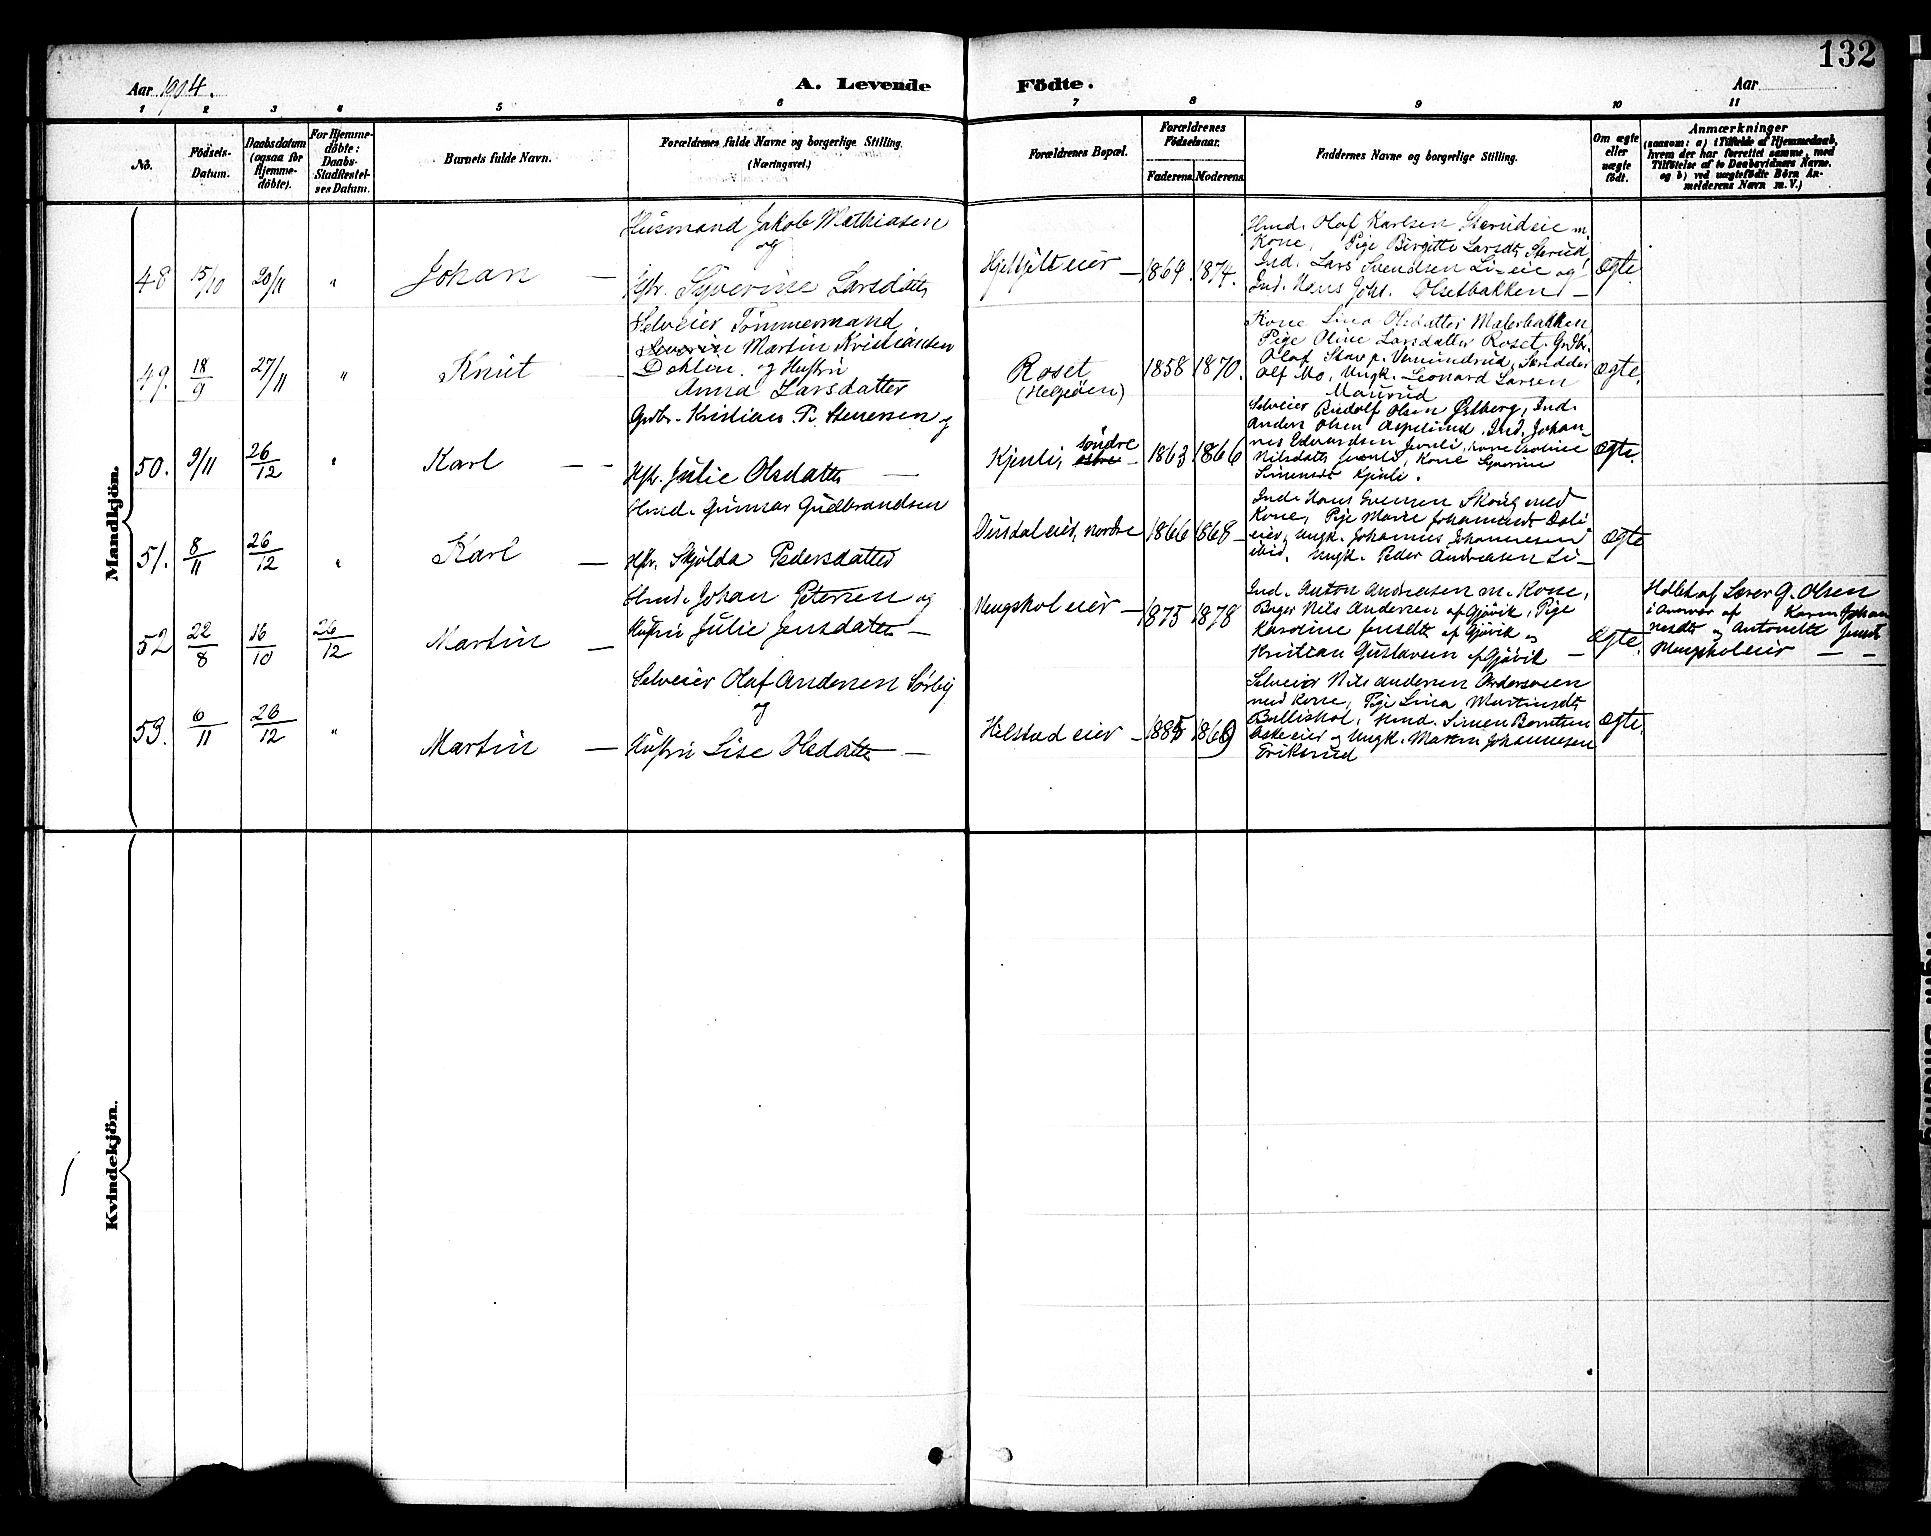 132
Aar 1904.
A. Levende Födte.
Aar
1 2 3 4 5 6 7 8 9 10 11
No.
Födsels-Datum.
Daabsdatum (ogsaa for Hjemme-döbte).
For Hjemme-döbte: Daabs-Stadfæstel-ses Datum.
Barnets fulde Navn.
Forældrenes fulde Navne og borgerlige Stilling.
(Næringsvei.)
Forældrenes Bopæl.
Forældrenes Födselsaar.
Faderens. Moderens.
Faddernes Navne og borgerlige Stilling.
Om ægte eller uægte födt.
Anmærkninger
(saasom: a) i Tilfælde af Hjemmedaab, hvem der har forrettet samme, med Tilföielse af to Daabsvidners Navne, og b) ved uægtefödte Börn An-melderens Navn m. V.)
Mandkjön.
48 15/10 20/11 " Johan —
Husmand Jakob Mathiasen
og
Hstr. Syverine Larsdatter
Hjeltjelt eier — 1864. 1874.
Hmd. Olaf Karlsen Sterudeie m.
Kone, Pige Birgitte Larsdtr Sterud,
Ind. Lars Svendsen Li-eie og
Ind. Hans Johs. Olsetbakken —
Ægte.
49. 18/9 27/11 " Knut
Selveier Tömmermand
Severin Martin Kristiansen
Dehlin og Hustru
Anna Larsdatter
Roset
(Helgeöen)
1858 1870.
Kone Lina Olsdatter Malerbakken,
Pige Oline Larsdatter Roset. Gr.
Olaf Vemundrud,
Olf Mo, Ungk. Leonard Larsen
Maurud
Ægte.
50. 9/11 26/12 " Karl — —
Gdbr. Kristian P. Stenersen og
Hstr. Julie Olsdatter —
Kjenli, söndre — 1863 1866
Selveier Rudolf Olsen Østberg, Ind.
Anders Olsen Asplund. Ind. Johan-
nes Edvardsen
Nilsdatter Kone Syverine
Simensdtr Kjenli.
Ægte.
51. 8/11 26/12 " Karl —
Hmd. Gunnar Gudbrandsen
Hstr. Skjölda Pedersdatter
Dusdal eier, nordre 1866 1868 —
Ind. Hans Evensen Skoug med
Kone, Pige Marie Johannesdtr Dali
eier, Ungk. Johannes Johannesen
ibid. Ungk. Peder Andreasen Li —
Ægte
52 22/8 16/10 26/12 Martin —
Hmd. Johan Petersen og
Hustru Julie Jensdatter —
Mengskol eier — 1875 1878
Ind. Anton Andreasen m. Kone,
Bager Nils Andersen af Gjövik, Pige
Karoline Jensdtr af Gjövik og
Kristian Gustavsen af Gjövik —
Ægte.
Holdt af Lærer G. Olsen
i Overvær af Karen Johan
nesdtr og Antonette Jensdtr
Mengskoleier — —
53. 6/11 26/12 " Martin —
Selveier Olaf Andersen Sörby
og
Hustru Lise Olsdatter —
Helstad eier — 1885 1869
Selveier Nils Andersen
med Kone, Pige Lina Martinsdtr
Balliskol, Hmd. Simen Berntsen
og Ungk. Martin Johannesen
Eriksrud
Ægte.
Kvindekjön.